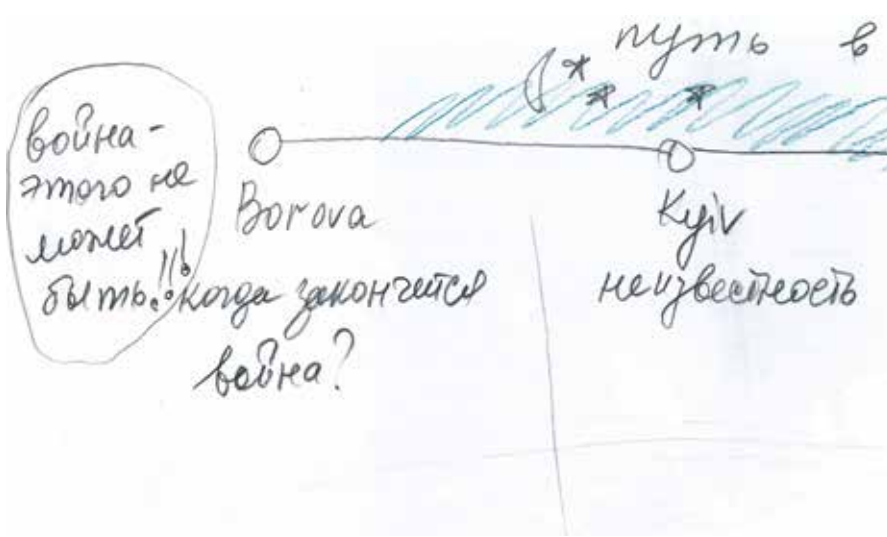 путь в
война -
этого не
может
быть!!!
Borova
когда закончится
война?
Kyiv
неизвестность